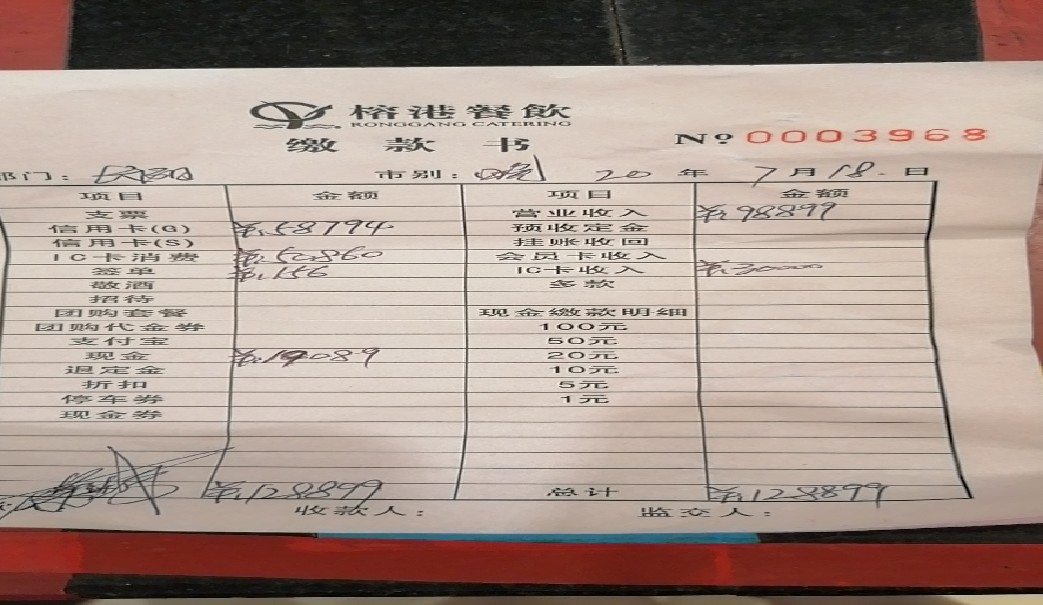 榕港餐飲
RONGGANG CATERING
缴款书 Nº 0003968
部门: 市别: 晚 20 年 7 月 18 日
项目 金额 项目 金额
支票 营业收入 ¥:98899
信用卡(G) ¥:58794 预收定金
信用卡(S) 挂账收回
IC卡消费 ¥:50860 会员卡收入
签单 ¥:156 IC卡收入 ¥:30000
敬酒 多款
招待
团购套餐 现金缴款明细
团购代金券 100元
支付宝 50元
现金 ¥:19089 20元
退定金 10元
折扣 5元
停车券 1元
现金券
¥:128899 总计 ¥:128899
收款人: 监交人: